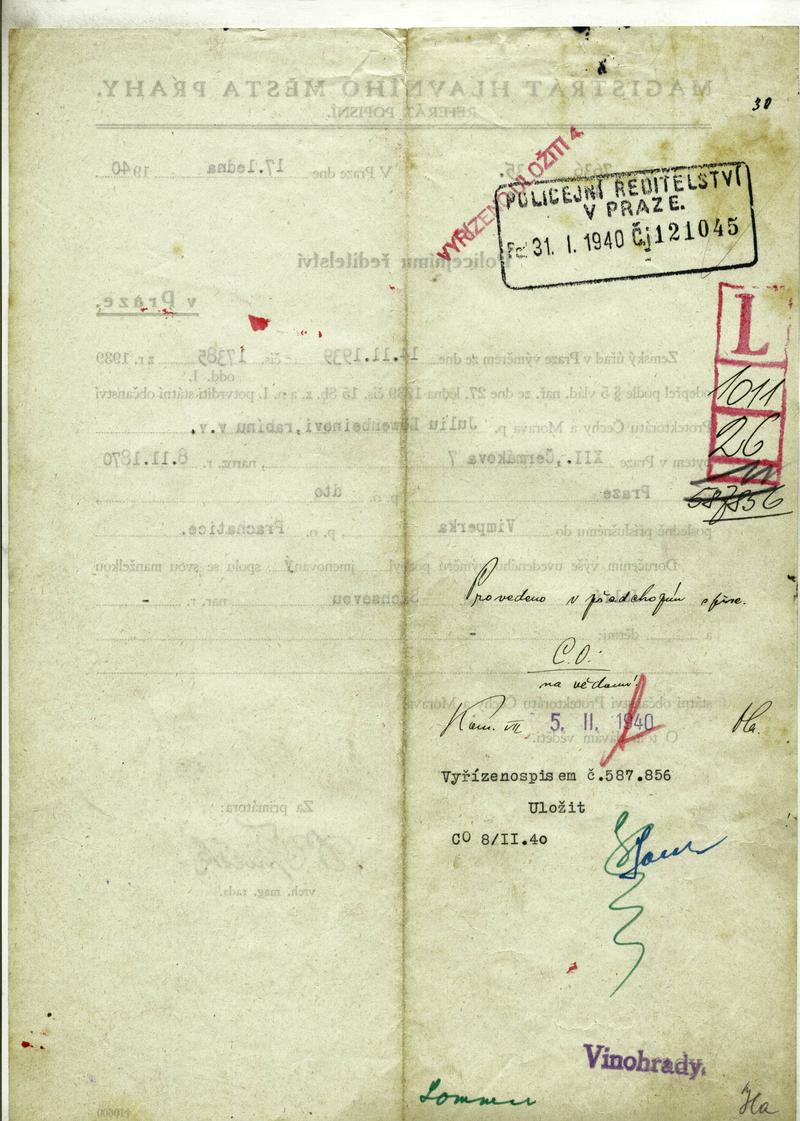 MAGISTRÁT HLAVNÍHO MĚSTA PRAHY.
REFERÁT POPISNÍ.
30
V Praze dne 17.ledna 1940
VYŘÍZENO ULOŽITI
POLICEJNÍ ŘEDITELSTVÍ
V PRAZE.
31. I. 1940 Čj 121045
Policejnímu ředitelství
v Praze.
L
1011
26
587856
Zemský úřad v Praze výměrem ze dne 14.11.1939 čís. 17385 z r. 1939
odd. I.
odepřel podle § 5 vlád. nař. ze dne 27. ledna 1939 čís. 15 Sb. z. a n. I. potvrditi státní občanství
Protektorátu Čechy a Morava p. Juliu Löwenbeinovi, rabínu v.v.
bytem v Praze XII., Čermákova 7, naroz. r. 8.11.1870
Praze p. o. dto
posledně příslušnému do Vimperka, p. o. Prachatice.
Doručením výše uvedeného výměru pozbyl jmenovaný spolu se svou manželkou
nar. r. -
a dětmi: -
státní občanství Protektorátu Čechy a Morava.
O tom dávám věděti.
Provedeno v předchozím spise.
C.O.
na vědomí!
5. II. 1940
Vyřízenospisem č.587.856
Uložit
CO 8/II.40
Za primátora:
vrch. mag. rada.
Vinohrady.